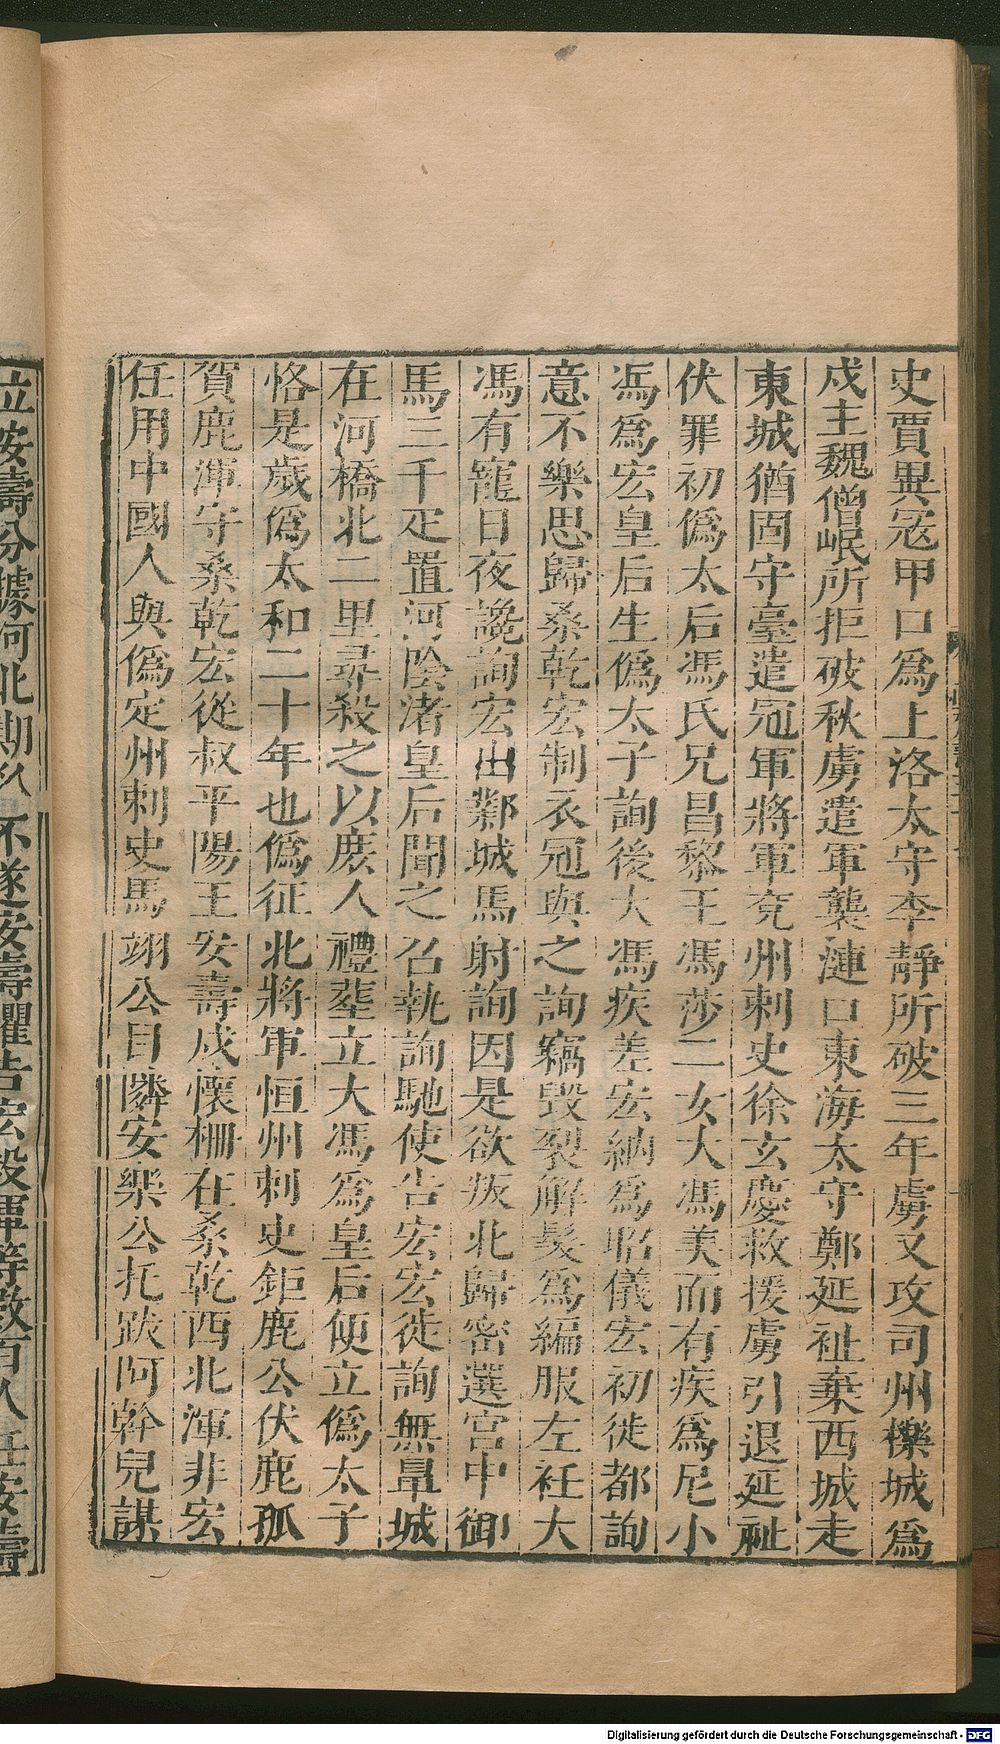 史賈異寇甲口爲上洛太守李靜所破三年虜又攻司州櫟城爲
戍主魏僧岷所拒破秋虜遣軍襲漣口東海太守鄭延祉棄西城走
東城猶固守臺遣冠軍將軍兗州刺史徐玄慶救援虜引退延祉
伏罪初僞太后馮氏兄昌黎王馮莎二女大馮美而有疾爲尼小
馮爲宏皇后生僞太子詢後大馮疾差宏納爲昭儀宏初徙都詢
意不樂思歸桑乾宏制衣冠與之詢竊毀裂解髮爲編服左衽大
馮有寵日夜讒詢宏出鄴城馬射詢因是欲叛北歸密選宮中御
馬三千疋置河陰渚皇后聞之召執詢馳使告宏宏徙詢無鼻城
在河橋北二里尋殺之以庶人禮葬立大馮爲皇后便立僞太子
恪是歲僞太和二十年也僞征北將軍恒州刺史鉅鹿公伏鹿孤
賀鹿渾守桑乾宏從叔平陽王安壽戍懷柵在桑乾西北渾非宏
任用中國人與僞定州刺史馬翊公目隣安樂公托跋阿幹兒謀
立安壽分據河北期久不遂安壽懼告宏殺渾等數百人任安壽
Digitalisierung gefördert durch die Deutsche Forschungsgemeinschaft - DFG